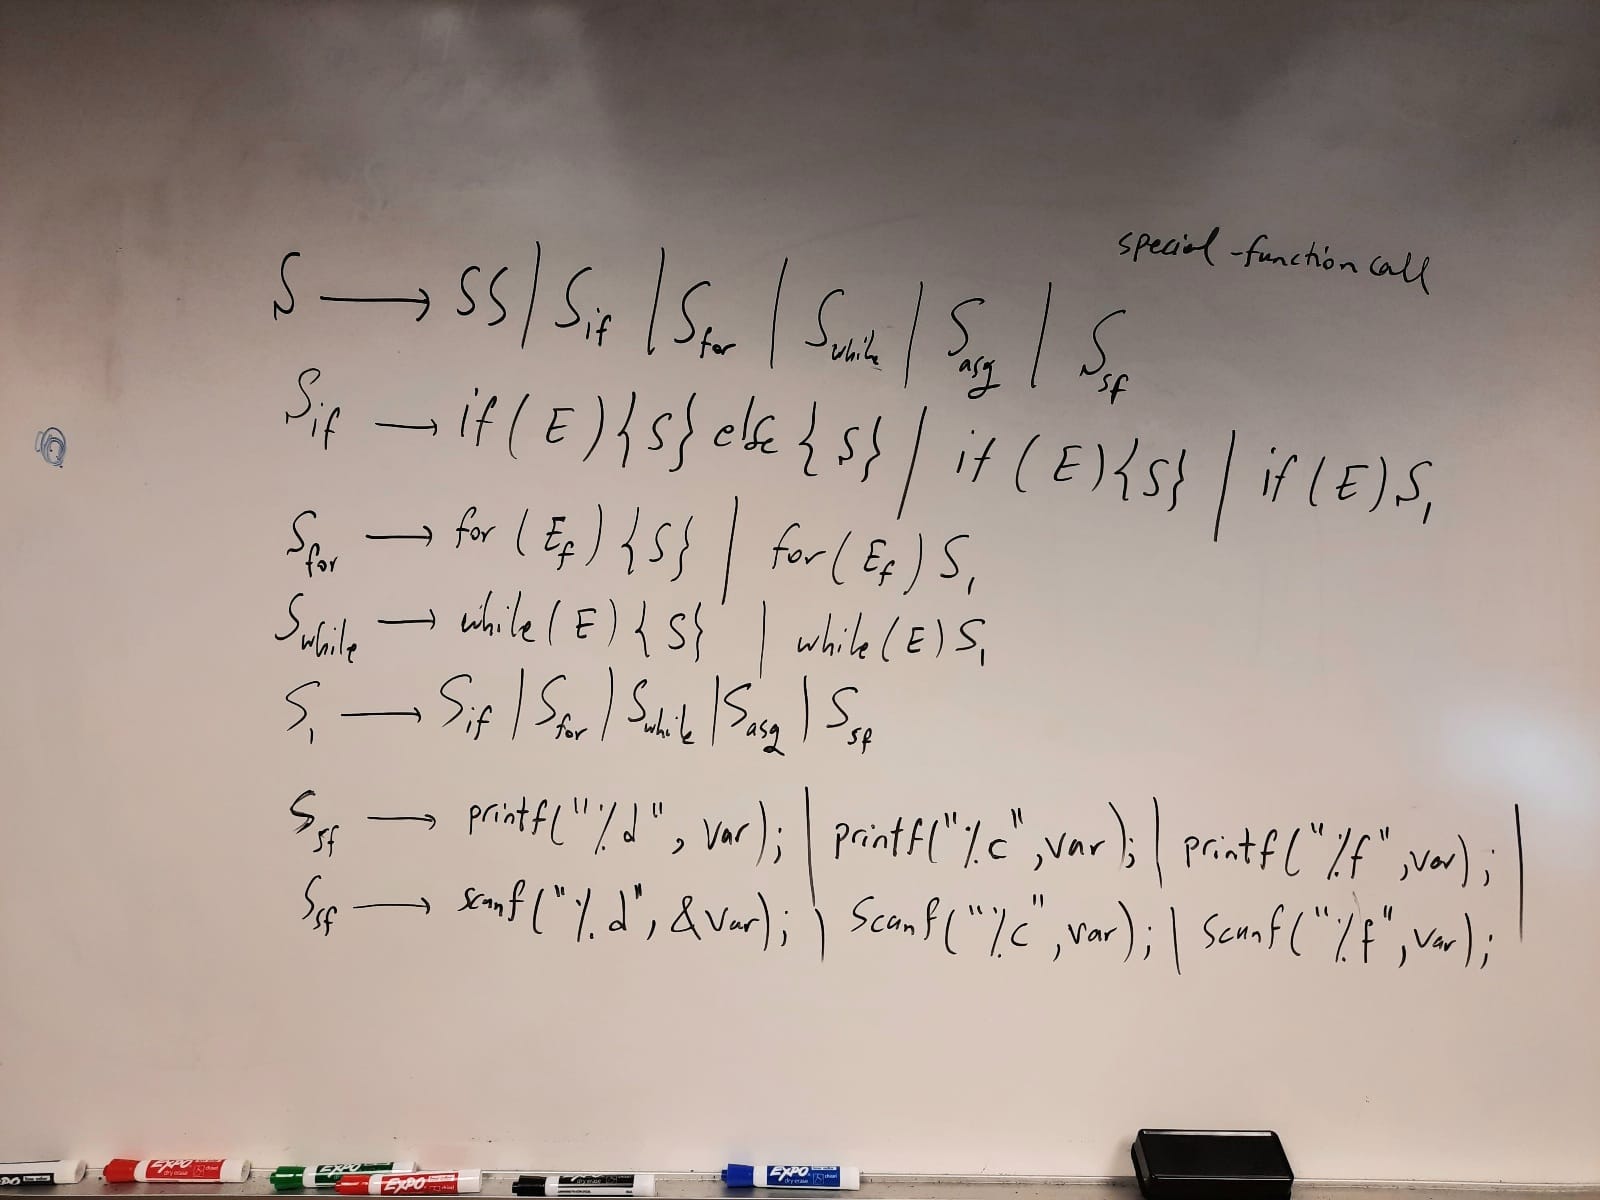 special-function call
S → SS | S_if | S_for | S_while | S_asg | S_sf
S_if → if(E){S} else {S} | if(E){S} | if(E)S_1
S_for → for(E_f){S} | for(E_f)S_1
S_while → while(E){S} | while(E)S_1
S_1 → S_if | S_for | S_while | S_asg | S_sf
S_sf → printf("%d", var); | printf("%c", var); | printf("%f", var); |
S_sf → scanf("%d", &var); | scanf("%c", var); | scanf("%f", var);
EXPO
EXPO
EXPO
EXPO dry erase